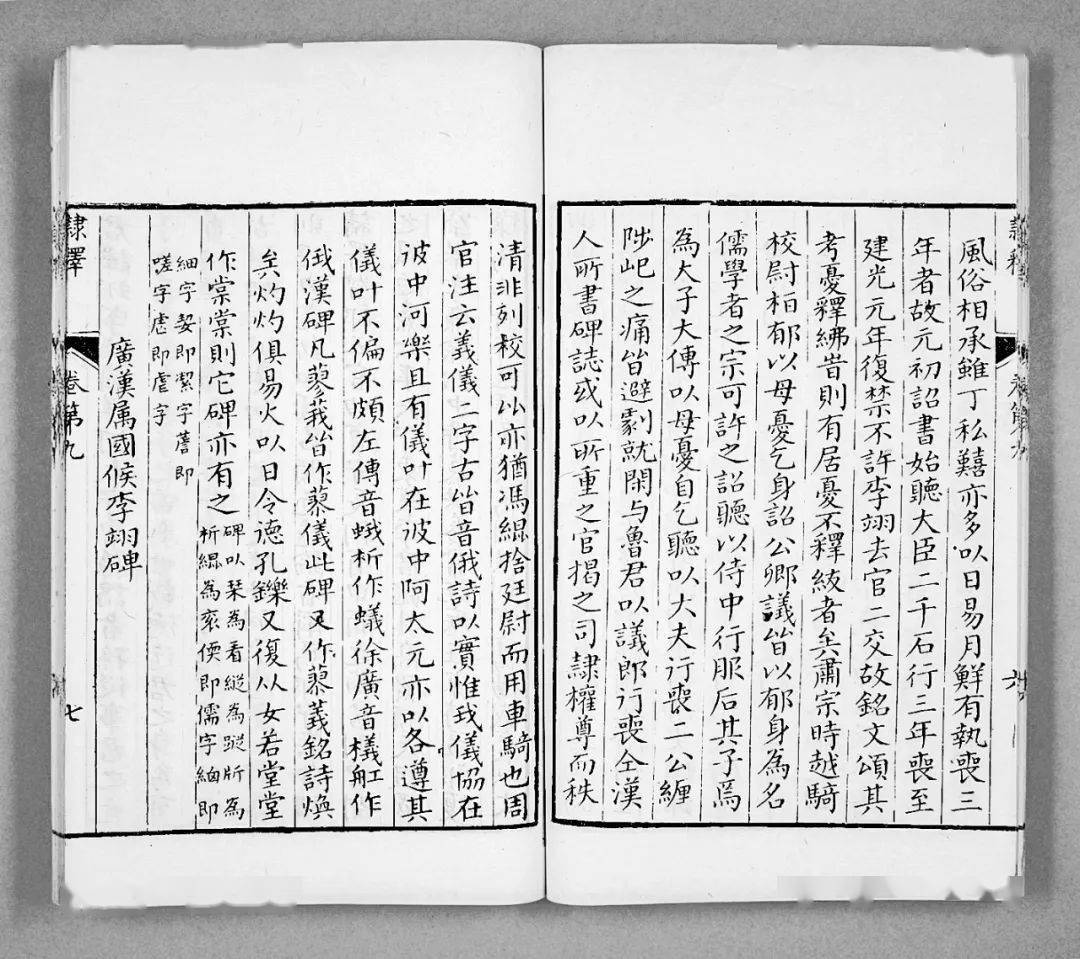 風俗相承雖丁私囏亦多以日易月鮮有執喪三
年者故元初詔書始聽大臣二千石行三年喪至
建光元年復禁不許李翊去官二交故銘文頌其
考憂釋紼昔則有居憂不釋紱者矣肅宗時越騎
校尉桓郁以母憂乞身詔公卿議皆以郁身為名
儒學者之宗可許之詔聽以侍中行服后其子焉
為大子大傅以母憂自乞聽以大夫行喪二公纏
陟屺之痛皆避劇就閑与魯君以議郎行喪仝漢
人所書碑誌或以所重之官揭之司隸權尊而秩
清非列校可以亦猶馮緄捨廷尉而用車騎也周
官注云義儀二字古皆音俄詩以實惟我儀協在
彼中河樂且有儀叶在彼中阿太元亦以各遵其
儀叶不偏不頗左傳音蛾析作蟻徐廣音檥舡作
俄漢碑凡蓼莪皆作蓼儀此碑又作蓼義銘詩煥
矣灼灼俱易火以日令德孔鑠又復从女若堂堂
作棠棠則它碑亦有之
碑以栞為看縱為蹤斨為
析緄為衮偄即儒字紬即
細字㛃即潔字蓍即
嗟字虙即虗字
廣漢属國候李翊碑
隸釋
卷第九
七